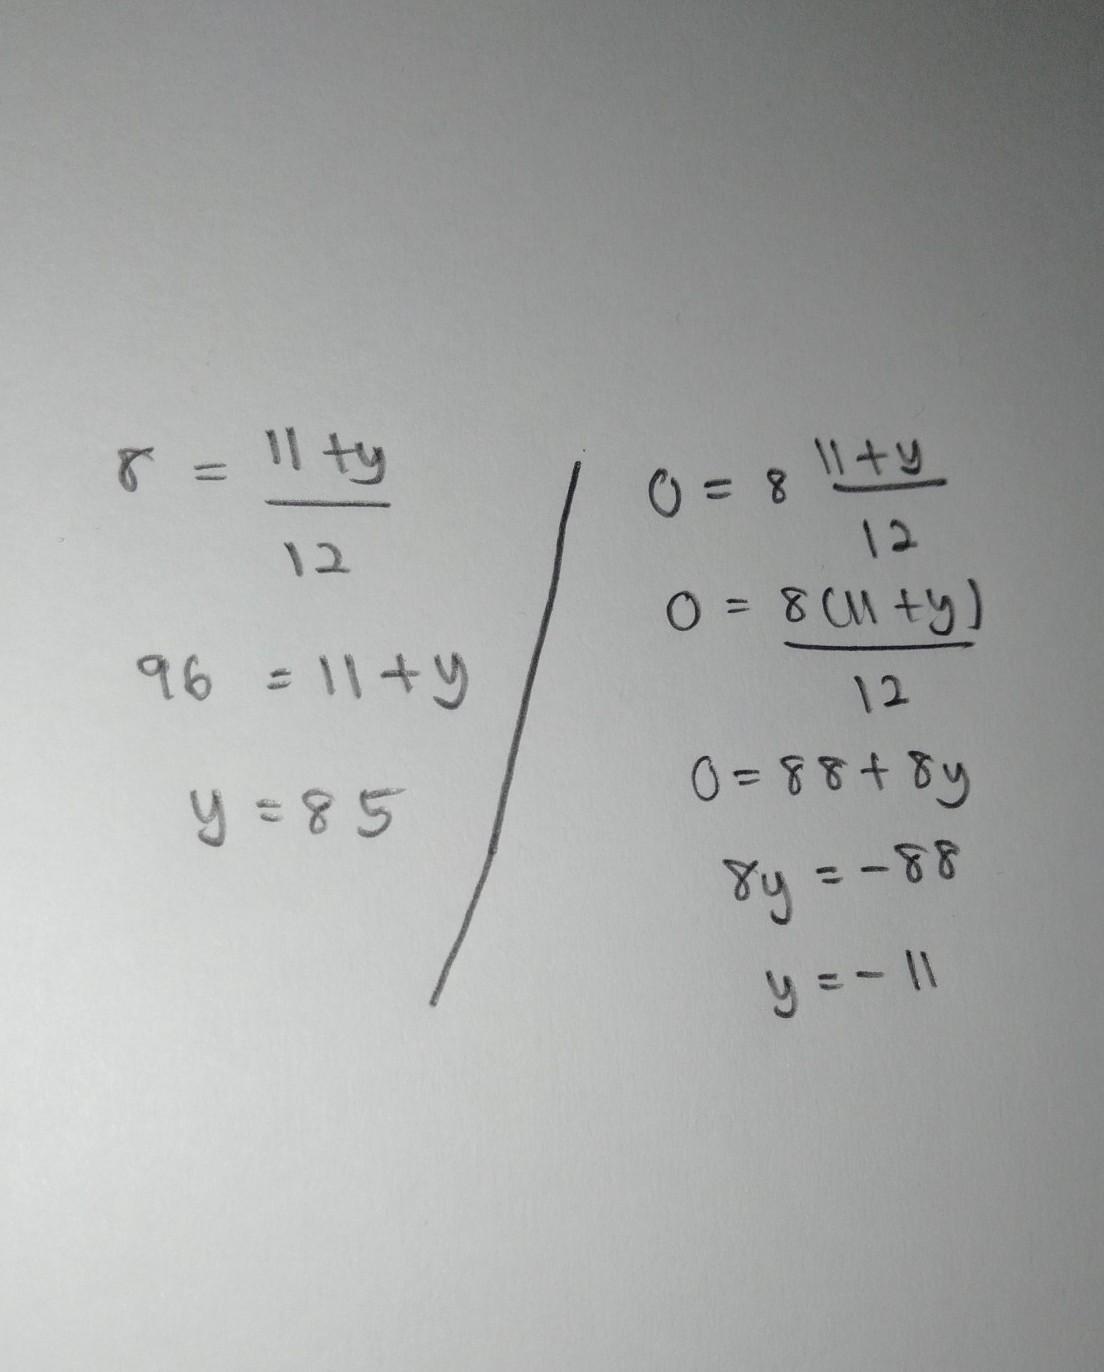 8 = 11 + y
12
96 = 11 + y
y = 85
0 = 8 11 + y
12
0 = 8(11 + y)
12
0 = 88 + 8y
8y = -88
y = -11